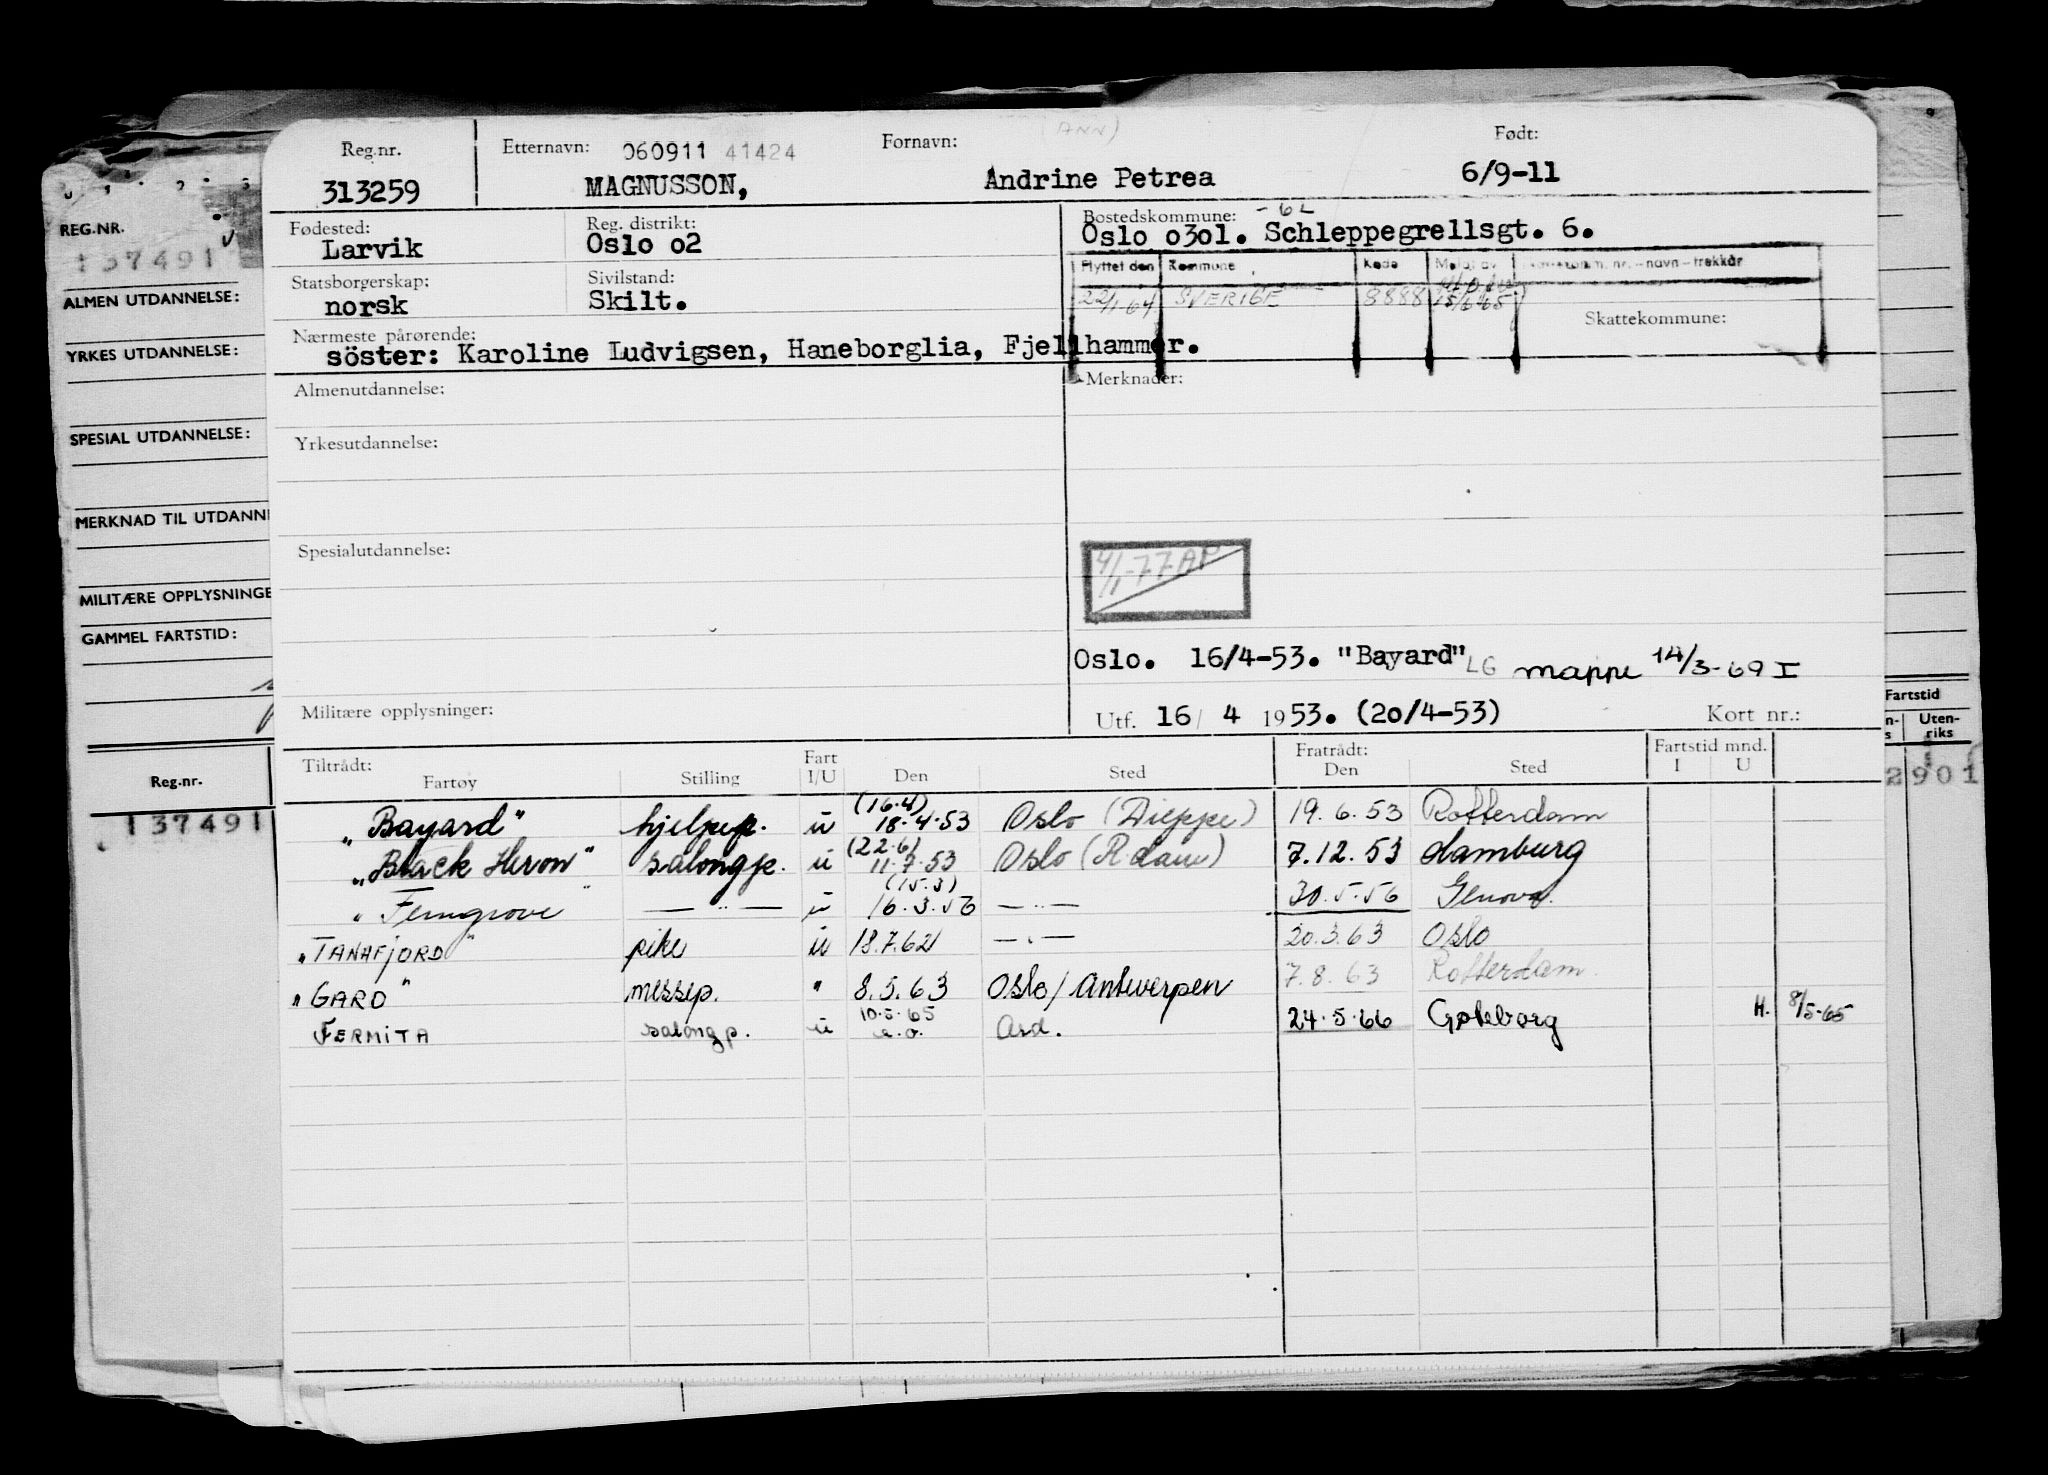 (ANN)
Reg.nr. Etternavn: 060911 41424 Fornavn: Født:
313259 MAGNUSSON, Andrine Petrea 6/9-11
Fødested: Reg. distrikt: Bostedskommune: -62
Larvik Oslo o2 Oslo o3ol. Schleppegrellsgt. 6.
Statsborgerskap: Sivilstand: Flyttet den Kommune Kode Meldt av
norsk Skilt. 22/1-64 SVERIGE 8888 15/6-65
Skattekommune:
Nærmeste pårørende:
söster: Karoline Ludvigsen, Haneborglia, Fjellhammer.
Almenutdannelse: Merknader:
Yrkesutdannelse:
Spesialutdannelse:
4/1-77 AP
Oslo. 16/4-53. "Bayard" LG mappe 14/3-69 I
Militære opplysninger: Utf. 16/ 4 1953. (20/4-53) Kort nr.:
Tiltrådt: Fart Fratrådt: Fartstid mnd.
Fartøy Stilling I/U Den Sted Den Sted I U
"Bayard" hjelpep. u (16.4) 18.4.53 Oslo (Dieppe) 19.6.53 Rotterdam
"Black Heron" salongp. u (22.6) 11.7.53 Oslo (R.dam) 7.12.53 Hamburg
"Ferngrove" — " — u (15.3) 16.3.56 — " — 30.5.56 Genova.
"TANAFJORD" pike u 18.7.62 — " — 20.3.63 Oslo
"GARD" messep. " 8.5.63 Oslo/Antwerpen 7.8.63 Rotterdam.
FERMITA salongp. u 10.5.65 e.o. Ard. 24.5.66 Gøteborg H. 8/5-65
REG.NR.
137491
ALMEN UTDANNELSE:
YRKES UTDANNELSE:
SPESIAL UTDANNELSE:
MERKNAD TIL UTDANN
MILITÆRE OPPLYSNINGE
GAMMEL FARTSTID:
Reg.nr.
137491
Fartstid
Uten-
riks
2901